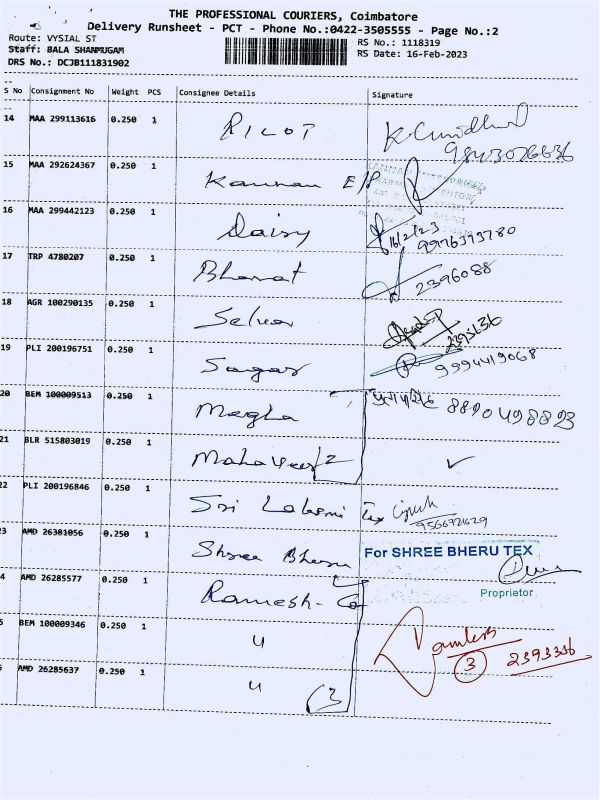 THE PROFESSIONAL COURIERS, Coimbatore
Delivery Runsheet - PCT - Phone No.:0422-3505555 - Page No.:2
Route: VYSIAL ST
Staff: BALA SHANMUGAM
DRS No.: DCJB111831902
RS No.: 1118319
RS Date: 16-Feb-2023
S No Consignment No Weight PCS Consignee Details Signature
14 MAA 299113616 0.250 1 PILOT
15 MAA 292624367 0.250 1 Kannan E/P
16 MAA 299442123 0.250 1 Daisy 16/2/23 9976373780
17 TRP 4780207 0.250 1 Bharat 2396088
18 AGR 100290135 0.250 1 Selvar
19 PLI 200196751 0.250 1 Sagar 9994419068
20 BEM 100009513 0.250 1 Megha
21 BLR 515803019 0.250 1 Mahaveer 2 ✓
22 PLI 200196846 0.250 1 Sri Laksmi Tex
3 AMD 26381056 0.250 1 Shree Bheru For SHREE BHERU TEX
Proprietor
4 AMD 26285577 0.250 1 Ramesh-Co
5 BEM 100009346 0.250 1 u 3 2393336
AMD 26285637 0.250 1 u (3